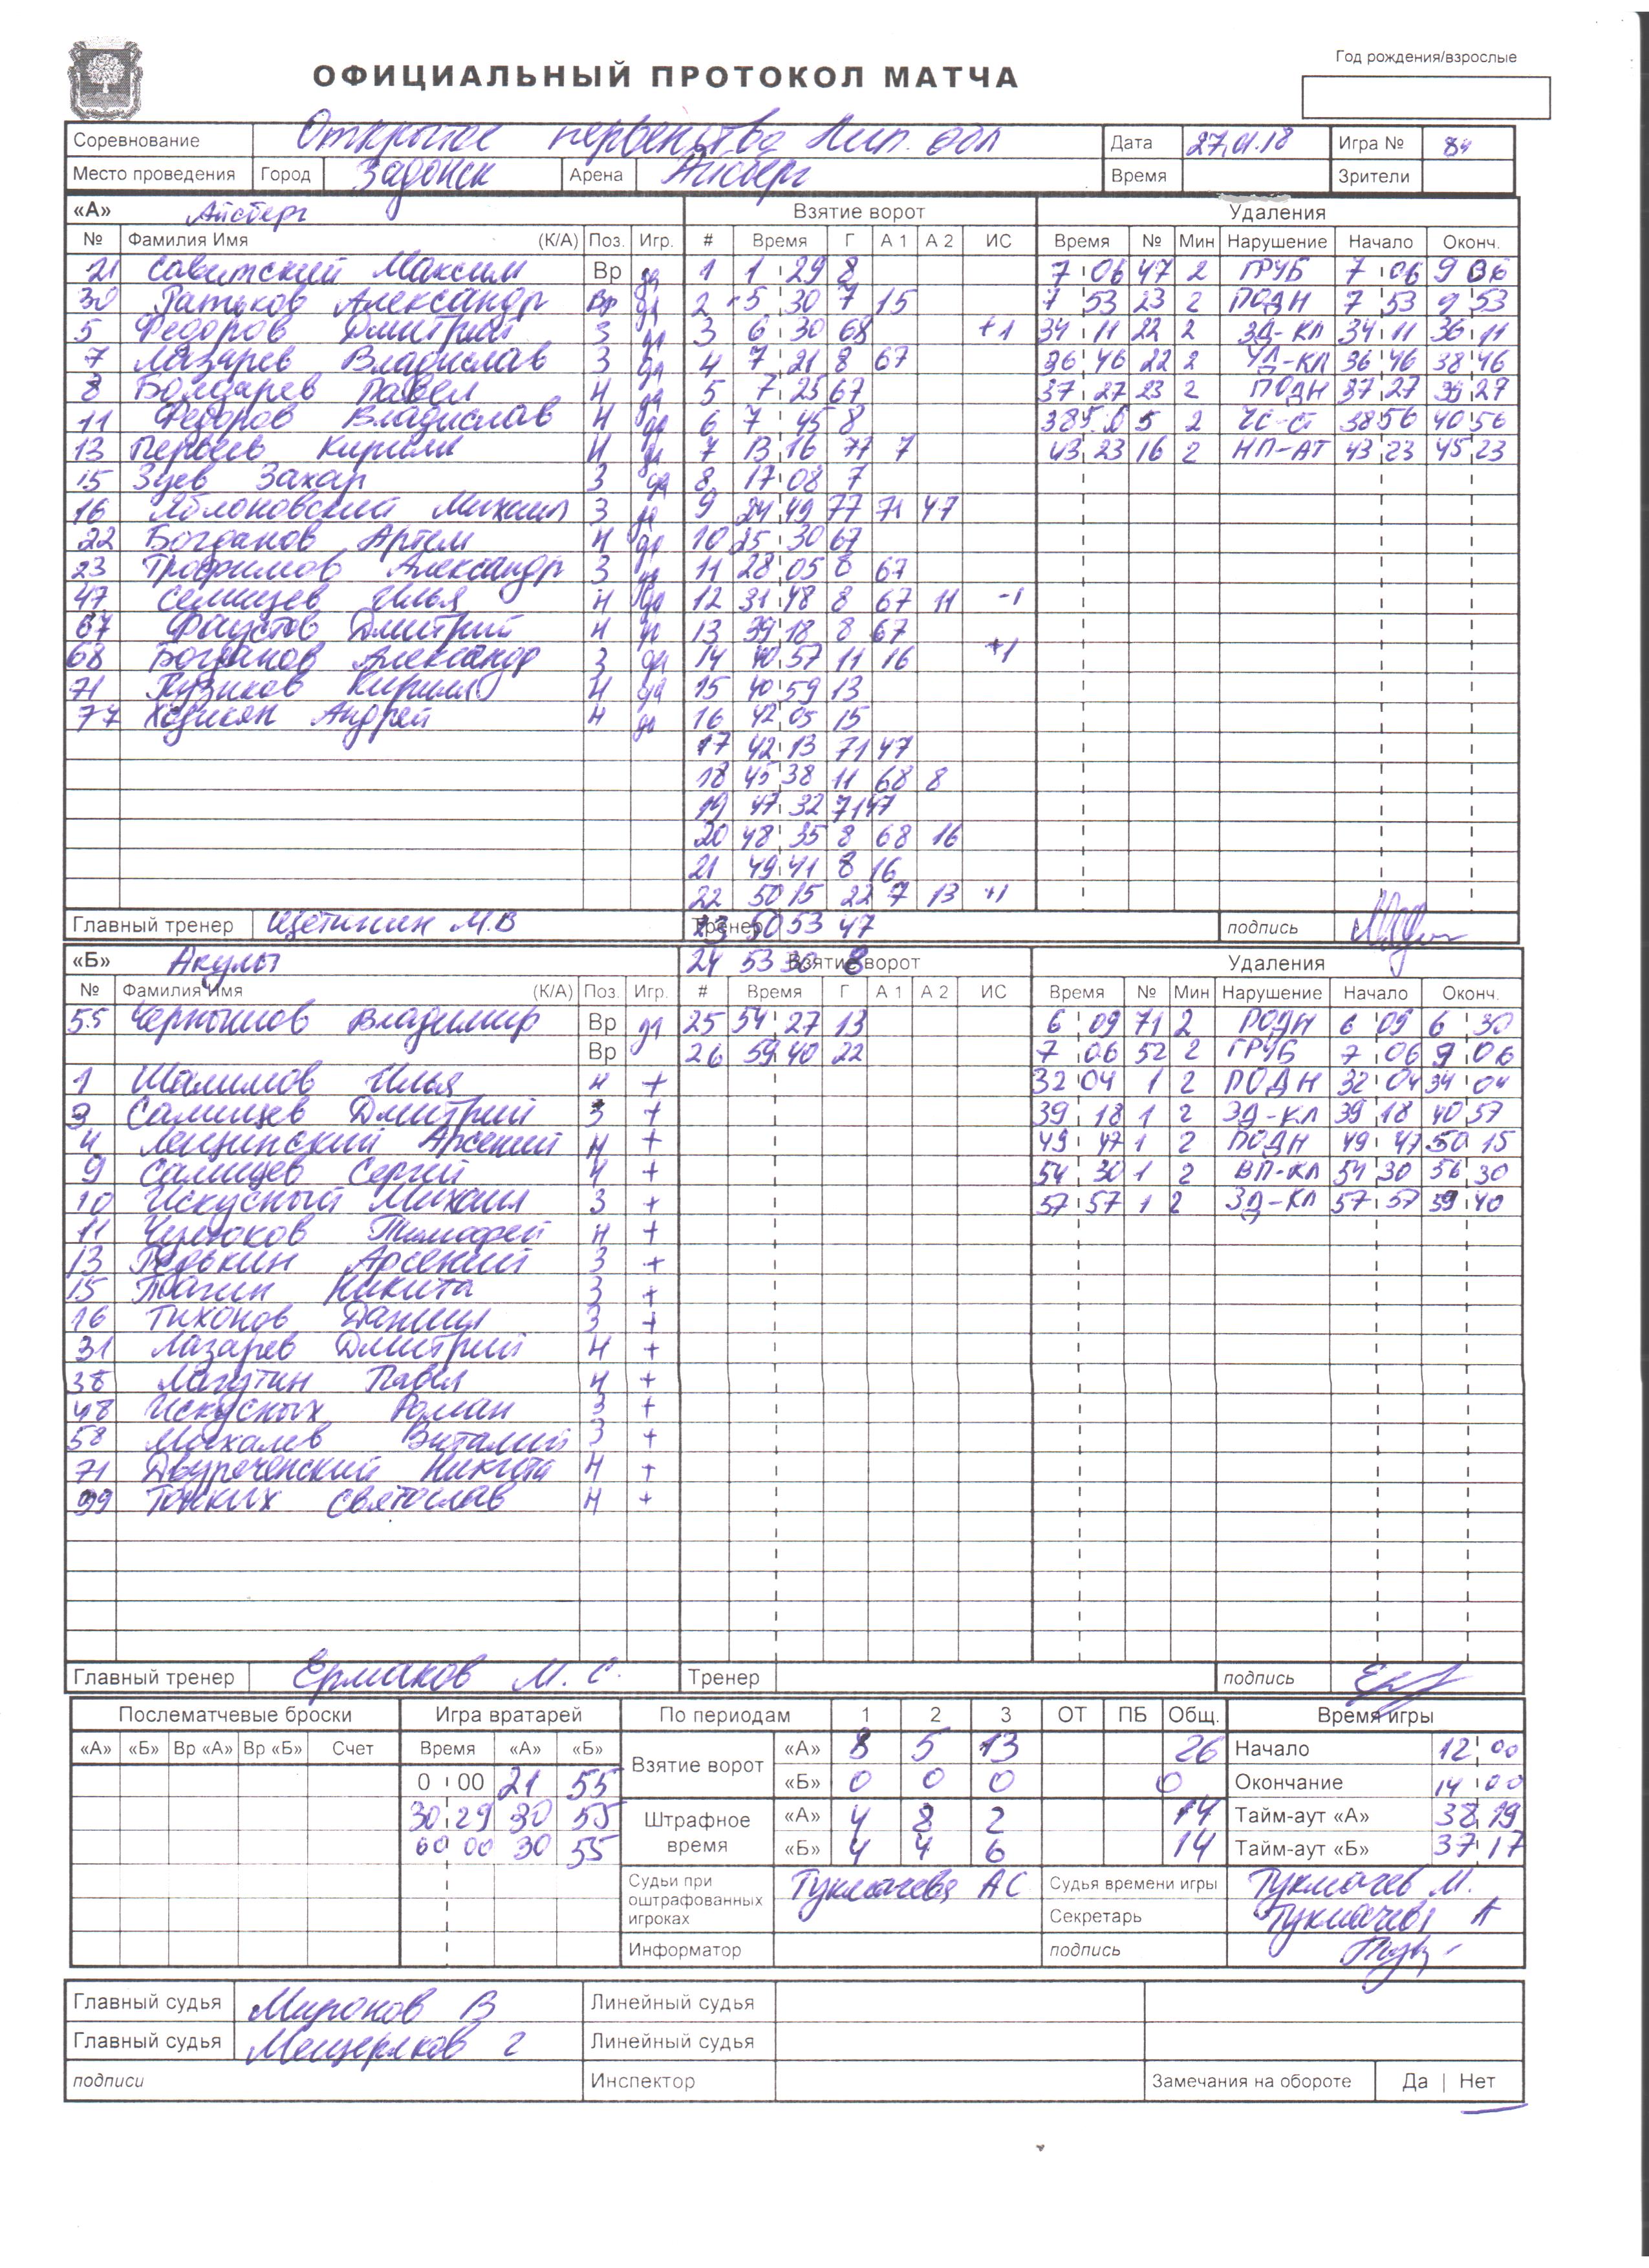 Год рождения/взрослые
ОФИЦИАЛЬНЫЙ ПРОТОКОЛ МАТЧА
Соревнование Открытое первенство Лип. обл Дата 27.01.18 Игра № 84
Место проведения Город Задонск Арена Айсберг Время Зрители
«А» Айсберг Взятие ворот Удаления
№ Фамилия Имя (К/А) Поз. Игр. # Время Г А 1 А 2 ИС Время № Мин Нарушение Начало Оконч.
21 Савитский Максим Вр да 1 1 29 8 7 06 47 2 ГРУБ 7 06 9 06
30 Ратьков Александр Вр да 2 5 30 7 15 7 53 23 2 ПОДН 7 53 9 53
5 Федоров Дмитрий З да 3 6 30 68 +1 34 11 22 2 ЗД-КЛ 34 11 36 11
7 Лазарев Владислав З да 4 7 21 8 67 36 46 22 2 УД-КЛ 36 46 38 46
8 Болдарев Павел Н да 5 7 25 67 37 27 23 2 ПОДН 37 27 39 27
11 Федоров Владислав Н да 6 7 45 8 38 56 5 2 ЧС-СТ 38 56 40 56
13 Первеев Кирилл Н да 7 13 16 77 7 43 23 16 2 НП-АТ 43 23 45 23
15 Зуев Захар З да 8 17 08 7
16 Яблоновский Михаил З да 9 24 49 77 71 47
22 Богданов Артем Н да 10 25 30 67
23 Трофимов Александр З да 11 28 05 8 67
47 Селищев Илья Н да 12 31 48 8 67 11 -1
67 Фаустов Дмитрий Н да 13 39 18 8 67
68 Богданов Александр З да 14 40 57 11 16 +1
71 Пузиков Кирилл Н да 15 40 59 13
77 Ходикян Андрей Н да 16 42 05 15
17 42 13 71 47
18 45 38 11 68 8
19 47 32 71 47
20 48 35 8 68 16
21 49 41 8 16
22 50 15 22 7 13 +1
Главный тренер Щетинин М.В Тренер 23 50 53 47 подпись
«Б» Акулы 24 53 30 8 Взятие ворот Удаления
№ Фамилия Имя (К/А) Поз. Игр. # Время Г А 1 А 2 ИС Время № Мин Нарушение Начало Оконч.
55 Чернышов Владимир Вр да 25 54 27 13 6 09 71 2 ПОДН 6 09 6 30
Вр 26 59 40 22 7 06 52 2 ГРУБ 7 06 9 06
1 Шалимов Илья Н + 32 04 1 2 ПОДН 32 04 34 04
3 Самищев Дмитрий З + 39 18 1 2 ЗД-КЛ 39 18 40 57
4 Лещинский Арсений Н + 49 47 1 2 ПОДН 49 47 50 15
9 Самищев Сергей Н + 54 30 1 2 ВП-КЛ 54 30 56 30
10 Искусный Михаил З + 57 57 1 2 ЗД-КЛ 57 57 59 40
11 Тимофей Н +
13 Редькин Арсений З +
15 Никита З +
16 Тихонов Даниил З +
31 Лазарев Дмитрий Н +
38 Лагутин Павел Н +
48 Искусных Роман З +
58 Москалев Виталий З +
71 Двуреченский Никита Н +
99 Тонких Святослав Н +
Главный тренер Ермаков М. С. Тренер подпись
Послематчевые броски Игра вратарей По периодам 1 2 3 ОТ ПБ Общ. Время игры
«А» «Б» Вр «А» Вр «Б» Счет Время «А» «Б» Взятие ворот «А» 8 5 13 26 Начало 12 00
0 00 21 55 «Б» 0 0 0 0 Окончание 14 00
30 29 30 55 Штрафное время «А» 4 8 2 14 Тайм-аут «А» 38 19
60 00 30 55 «Б» 4 4 6 14 Тайм-аут «Б» 37 17
Судьи при оштрафованных игроках Тукмачева АС Судья времени игры Тукмачев М.
Секретарь Тукмачева А
Информатор подпись
Главный судья Миронов В Линейный судья
Главный судья Мещеряков Г Линейный судья
подписи Инспектор Замечания на обороте Да | Нет